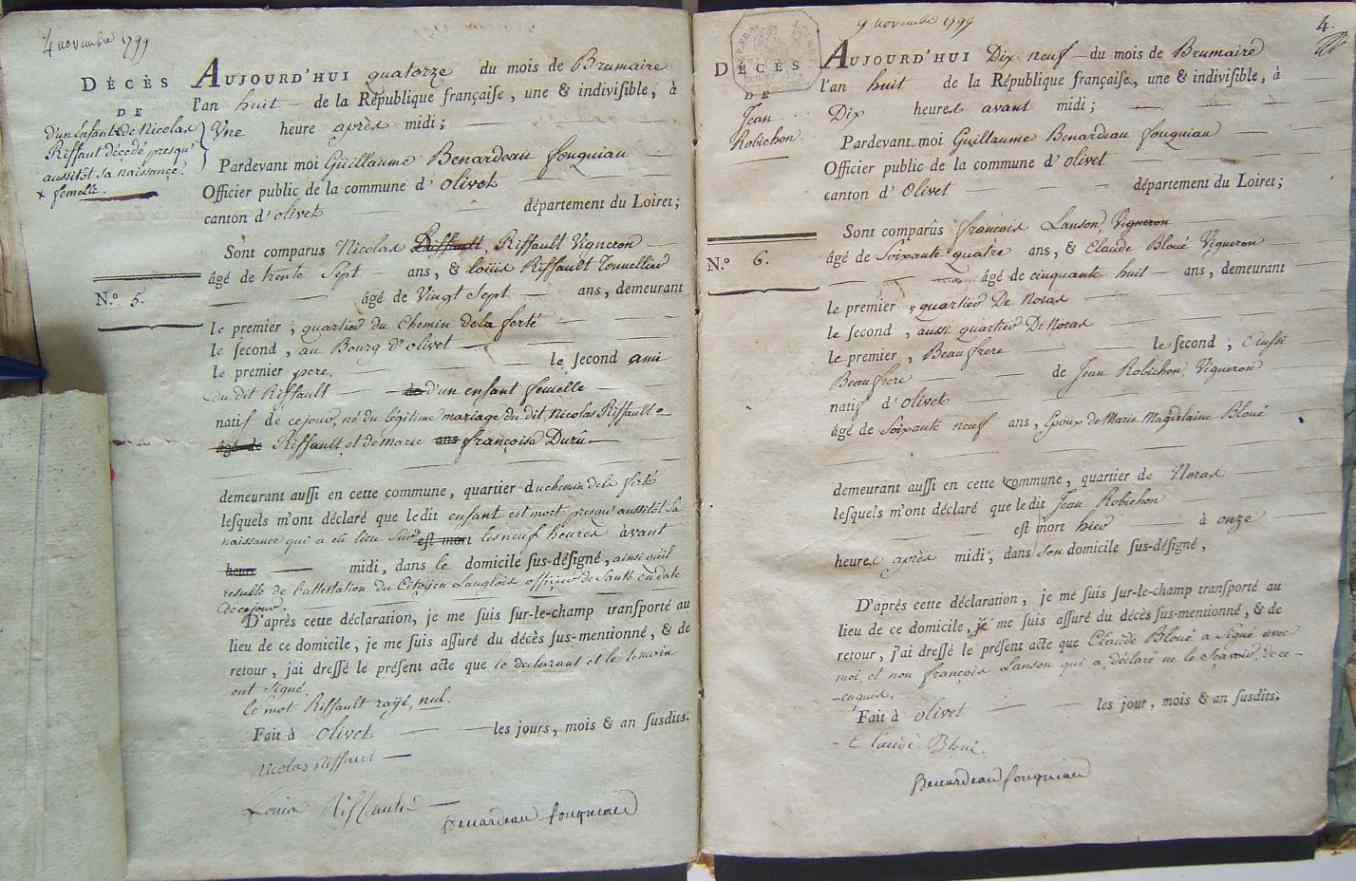 4 novembre 1799
DÉCÈS
DE
d'un Enfant de Nicolas
Riffaut décédé presqu'
aussitôt sa naissance.
x femelle.
N.° 5.
AUJOURD'HUI quatorze du mois de Brumaire
l'an huit de la République françaiſe, une & indiviſible, à
Une heure après midi ;
Pardevant moi Guillaume Benardeau fouquiau
Officier public de la commune d'olivet
canton d'olivet département du Loiret;
Sont comparus Nicolas Riffault Riffault Vigneron
âgé de trente Sept ans, & loüis Riffault Tonnellier
âgé de Vingt Sept ans, demeurant
le premier ; quartier du Chemin de la ferté
le ſecond , au Bourg d'olivet
le premier pere, le ſecond ami
du dit Riffault de d'un enfant femelle
natif de ce jour, né du légitime mariage du dit Nicolas Riffault
âgé de Riffault, et de marie ans françoise Durû
demeurant auſſi en cette commune, quartier du chemin de la ferté
leſquels m'ont déclaré que ledit enfant est mort presqu'aussitôt sa
naissance qui a eu lieu sur est mort les neuf heures avant
heure midi, dans le domicile ſus-déſigné, ainsi qu'il
resulte de l'attestation du Citoyen Langlois officier de Santé en date
de ce jour.
D'après cette déclaration, je me ſuis ſur-le-champ tranſporté au
lieu de ce domicile, je me ſuis aſſuré du décès ſus-mentionné, & de
retour, jai dreſſé le préſent acte que le declarant et le temoin
ont signé.
le mot Riffault rayé, nul.
Fait à olivet les jours, mois & an ſusdits.
Nicolas Riffaut
Louis Riffault
Benardeau fouquiau
9 novembre 1799
4.
DÉCÈS
DE
Jean
Robichon
N.° 6.
AUJOURD'HUI Dix neuf du mois de Brumaire
l'an huit de la République françaiſe, une & indiviſible, à
Dix heures avant midi ;
Pardevant moi Guillaume Benardeau fouquiau
Officier public de la commune d'olivet
canton d'Olivet département du Loiret;
Sont comparus françois Lanson, Vigneron
âgé de Soixante quatre ans, & Claude Bloué Vigneron
âgé de cinquante huit ans, demeurant
le premier , quartier De Noras
le ſecond , aussi quartier De Noras
le premier , Beaufrere le ſecond , aussi
Beaufrere de Jean Robichon, Vigneron
natif d'olivet
âgé de Soixante neuf ans, Epoux de Marie Magdelaine Bloué
demeurant auſſi en cette commune, quartier de Noras
leſquels m'ont déclaré que ledit Jean Robichon
est mort hier à onze
heures après midi, dans son domicile ſus-déſigné,
D'après cette déclaration, je me ſuis ſur-le-champ tranſporté au
lieu de ce domicile, je me ſuis aſſuré du décès ſus-mentionné, & de
retour, j'ai dreſſé le préſent acte que Claude Bloué a signé avec
moi, et non françois Lanson qui a déclaré ne le sçavoir, de ce
enquis.
Fait à olivet les jour, mois & an ſusdits.
Claude Bloué.
Benardeau fouquiau